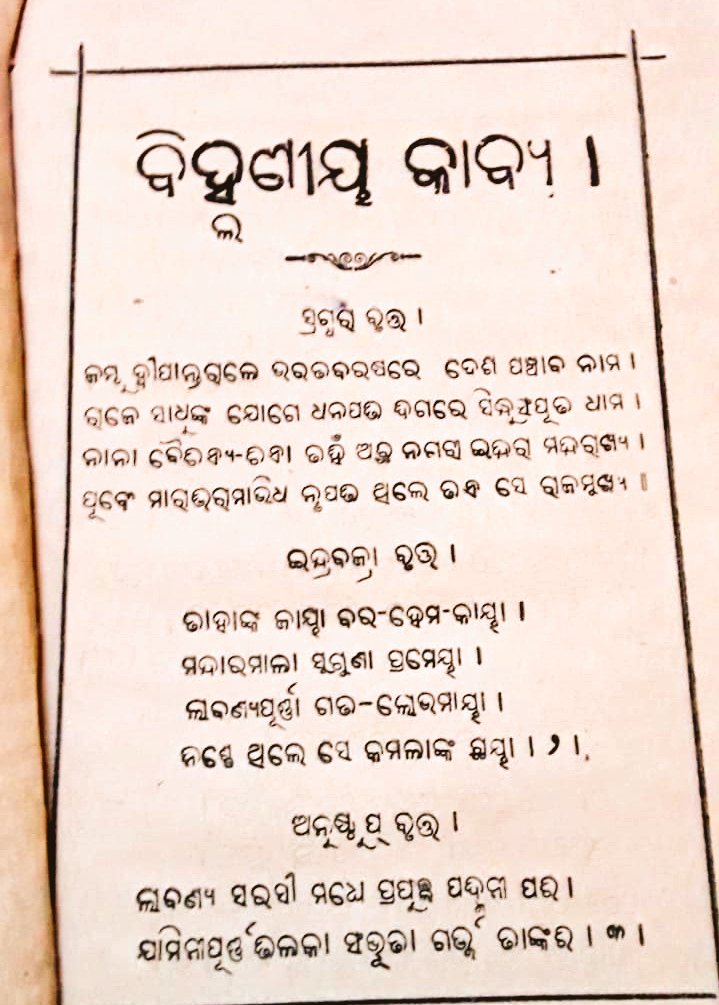 ବିହ୍ଲଣୀୟ କାବ୍ୟ ।
ଲ
ସ୍ରଗ୍ଧରା ବୃତ୍ତ ।
ଜମ୍ବୁ ଦ୍ୱୀପାନ୍ତରାଳେ ଭରତବରଷରେ ଦେଶ ପଞ୍ଚାବ ନାମ ।
ରାଜେ ସାଧୁଙ୍କ ଯୋଗେ ଧନପତି ଦିଗରେ ସିନ୍ଧୁସଂପୂତ ଧାମ ।
ନାନା ବୈଚିତ୍ର୍ୟ-ଚିତ୍ରା ତହିଁ ଅଛି ନଗରୀ ଇନ୍ଦିରା ମନ୍ଦିରାଖ୍ୟ ।
ପୂର୍ବେ ନୃପତି ଥିଲେ ତହିଁ ସେ ରାଜମୁଖ୍ୟ ॥
ଇନ୍ଦ୍ରବଜ୍ରା ବୃତ୍ତ ।
ତାହାଙ୍କ ଜାୟା ବର-ହେମ-କାୟା ।
ମନ୍ଦାରମାଳା ସୁଗୁଣା ପ୍ରମେୟା ।
ଲାବଣ୍ୟପୂର୍ଣ୍ଣା ଗତ-ଲୋଭମାୟା ।
ନିଶ୍ଚେ ଥିଲେ ସେ କମଳାଙ୍କ ଛାୟା । ୨ ।
ଅନୁଷ୍ଟୁପ୍ ବୃତ୍ତ ।
ଲାବଣ୍ୟ ସରସୀ ମଧ୍ୟେ ପ୍ରଫୁଲ୍ଲ ପଦ୍ମିନୀ ପରି ।
ଯାମିନୀପୂର୍ଣ୍ଣତିଳକା ସଂଭୂତା ଗର୍ଭୁ ତାଙ୍କରି । ୩ ।